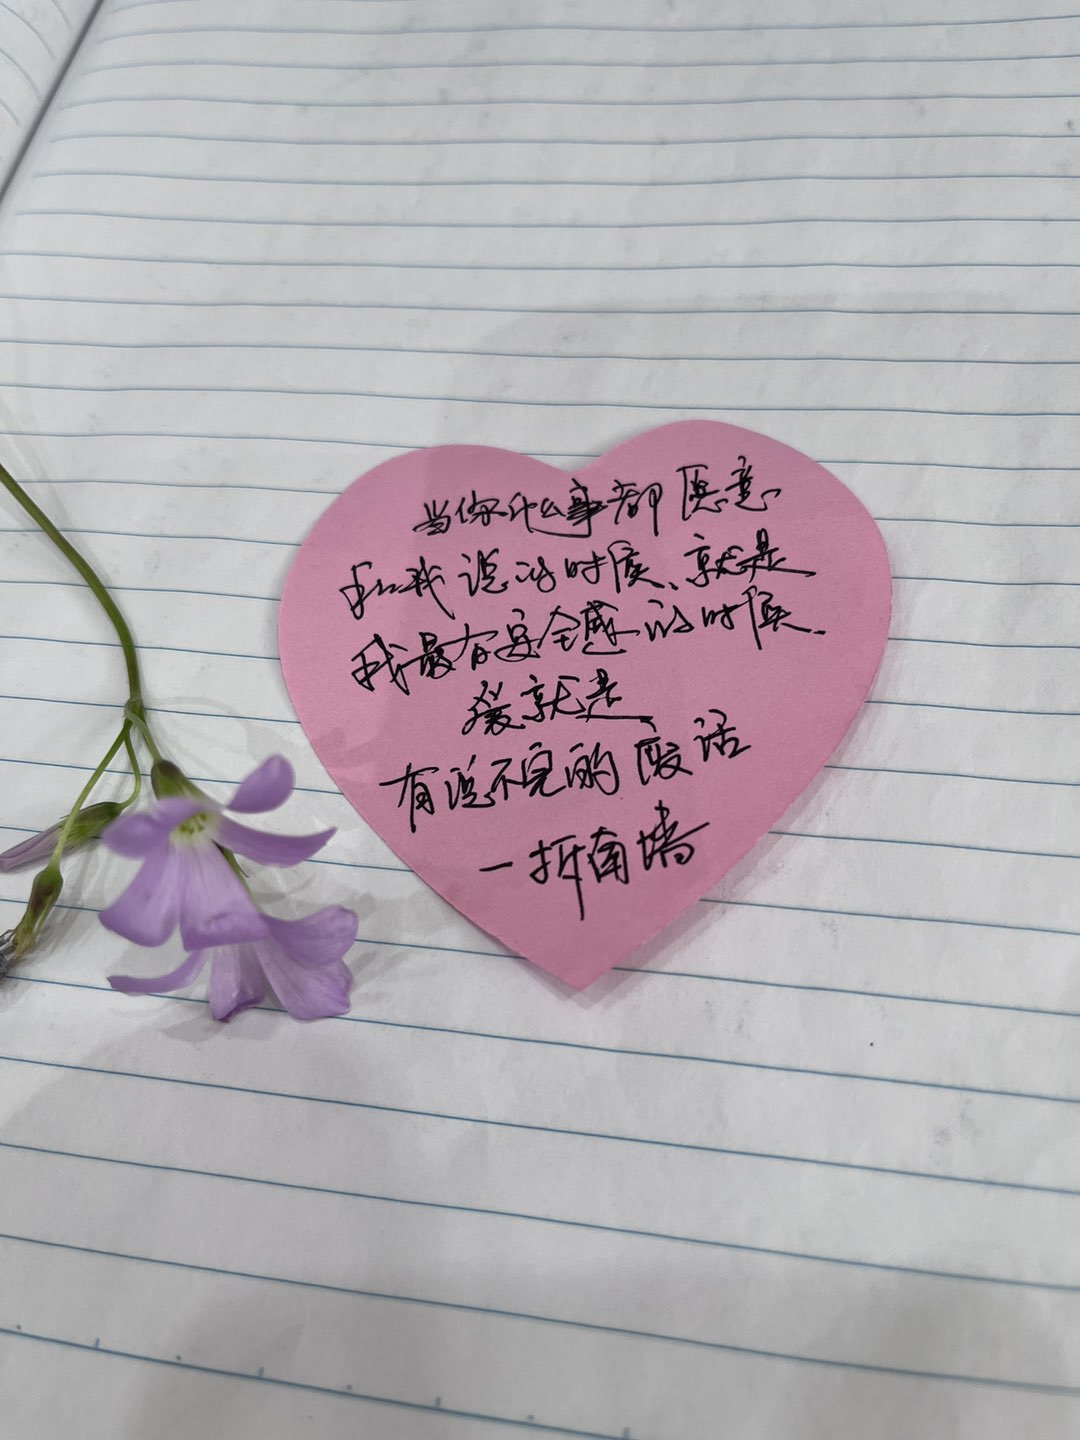 当你什么事都愿意
和我说的时候、就是
我最有安全感的时候.
爱就是
有说不完的废话
一拆南墙